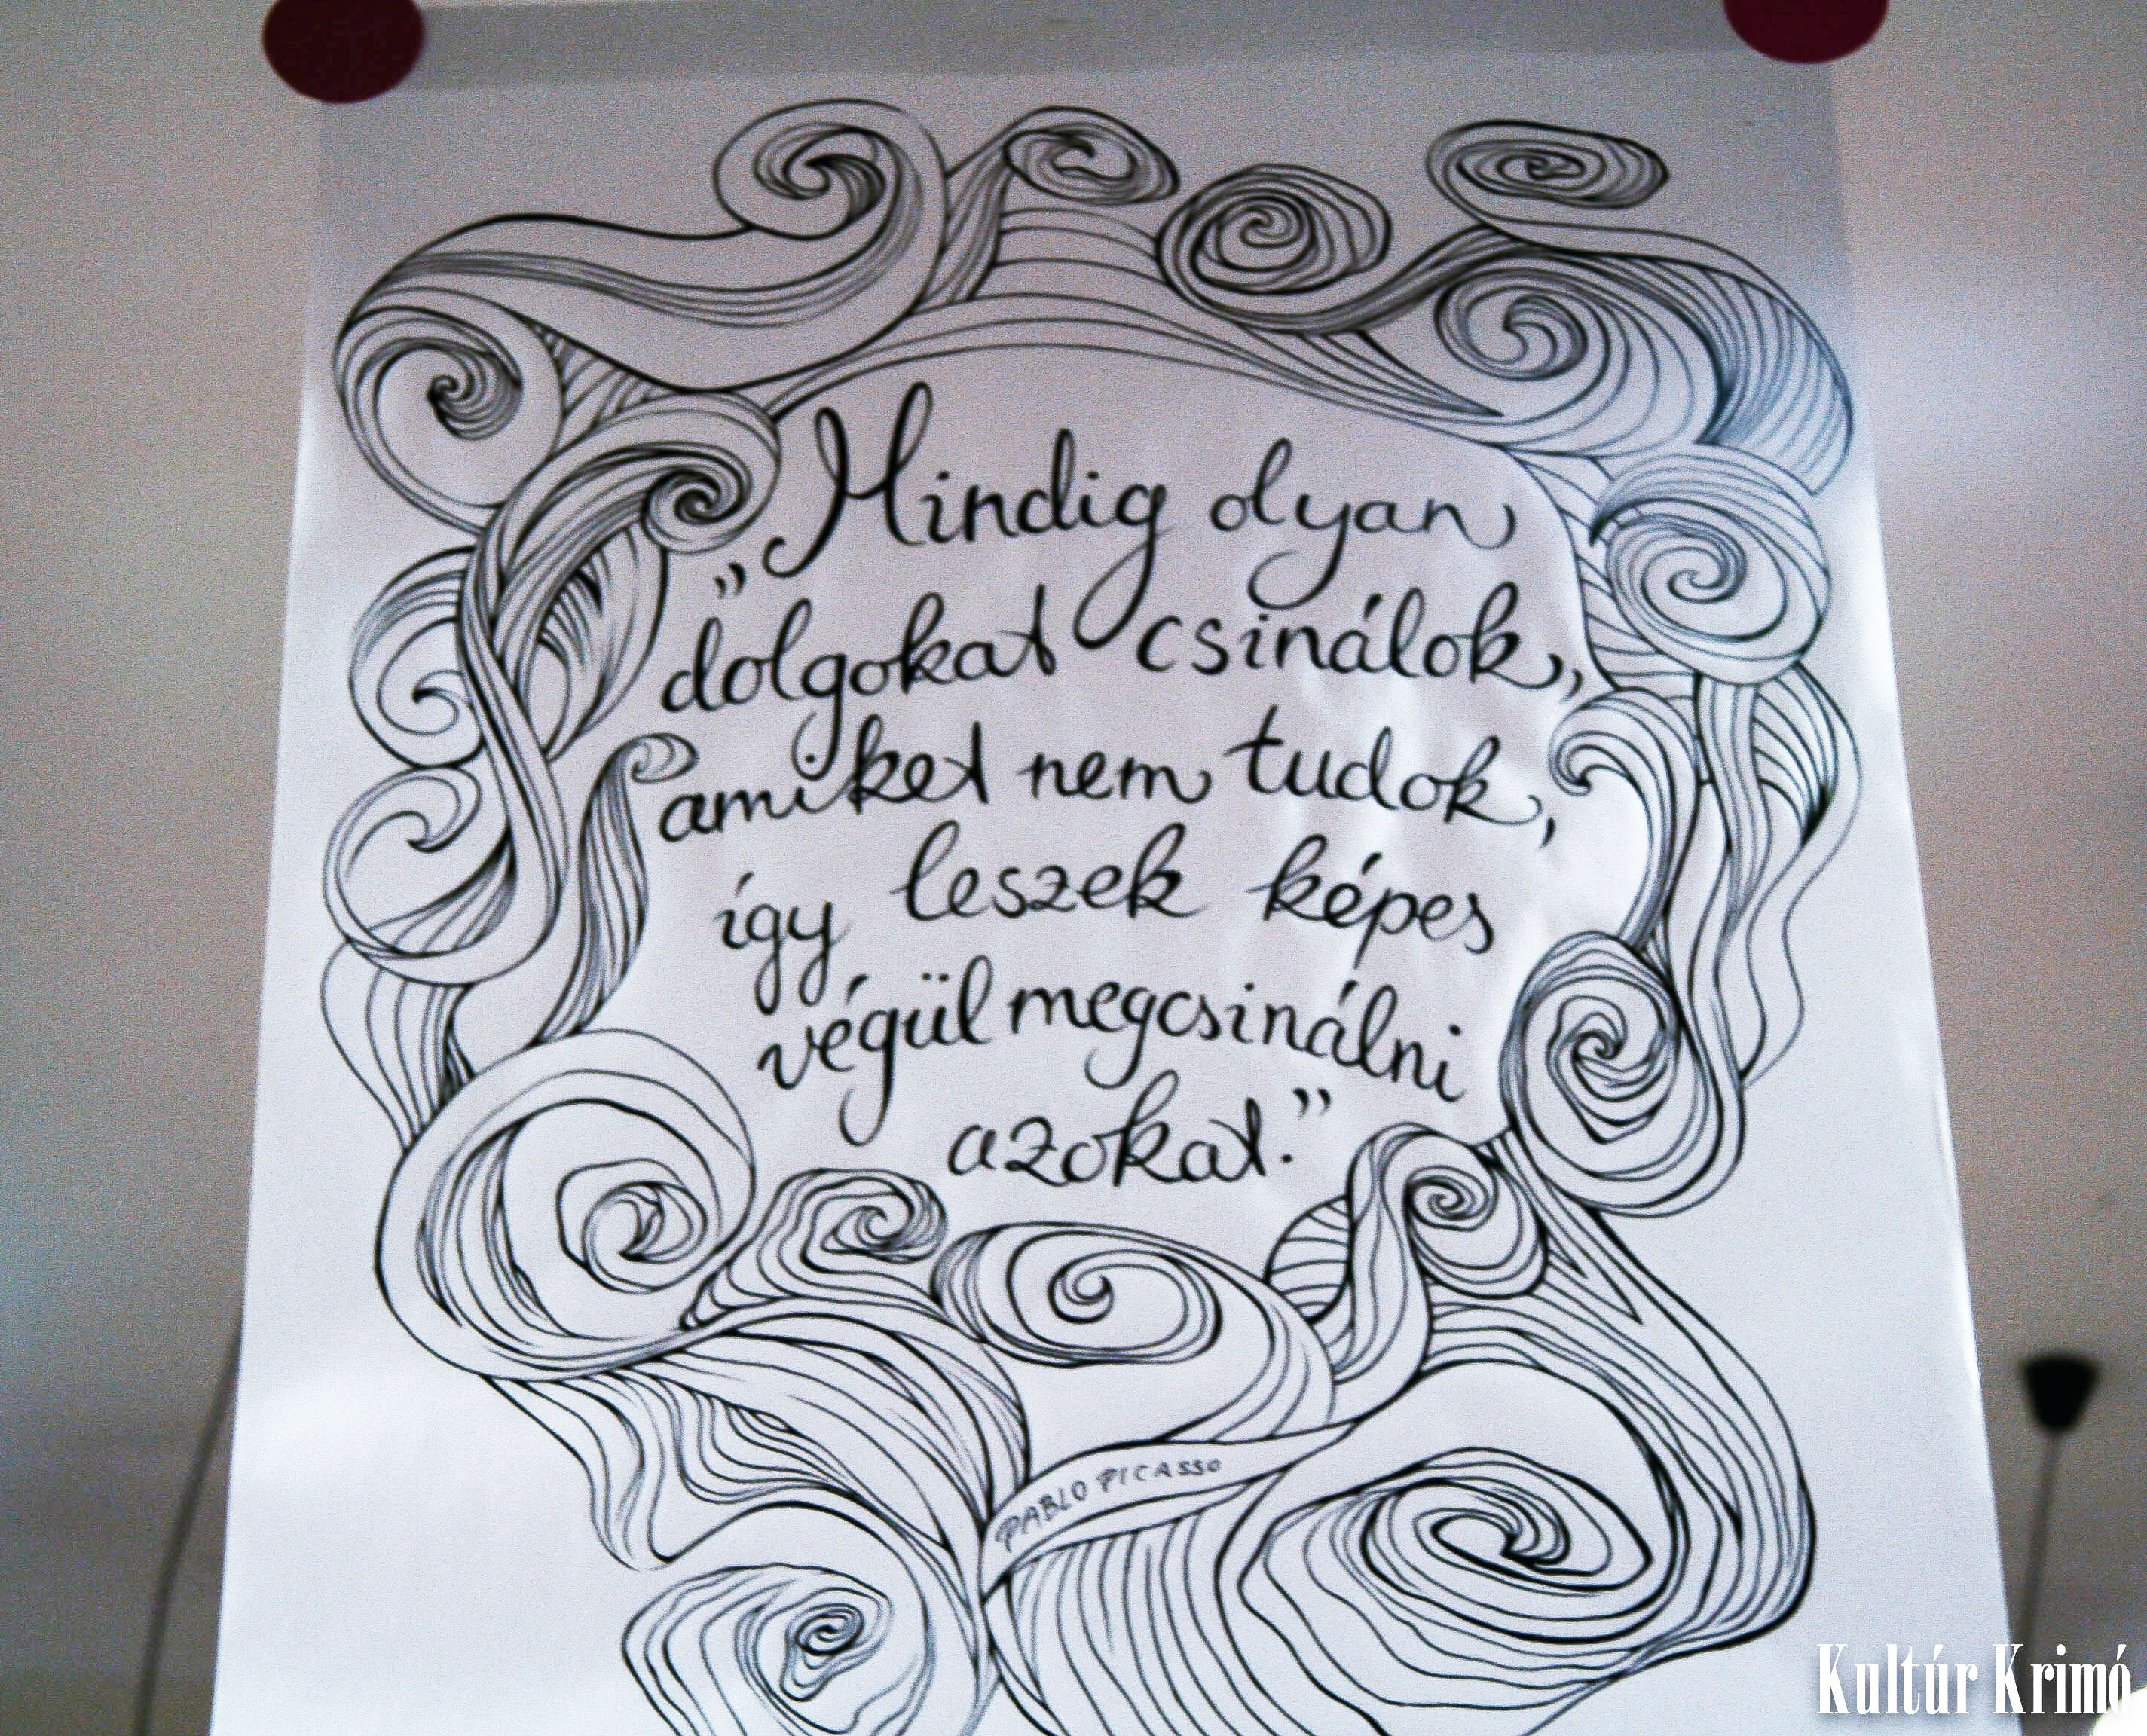 „Mindig olyan
dolgokat csinálok,
amiket nem tudok,
így leszek képes
végül megcsinálni
azokat."
PABLO PICASSO
Kultúr Krimó